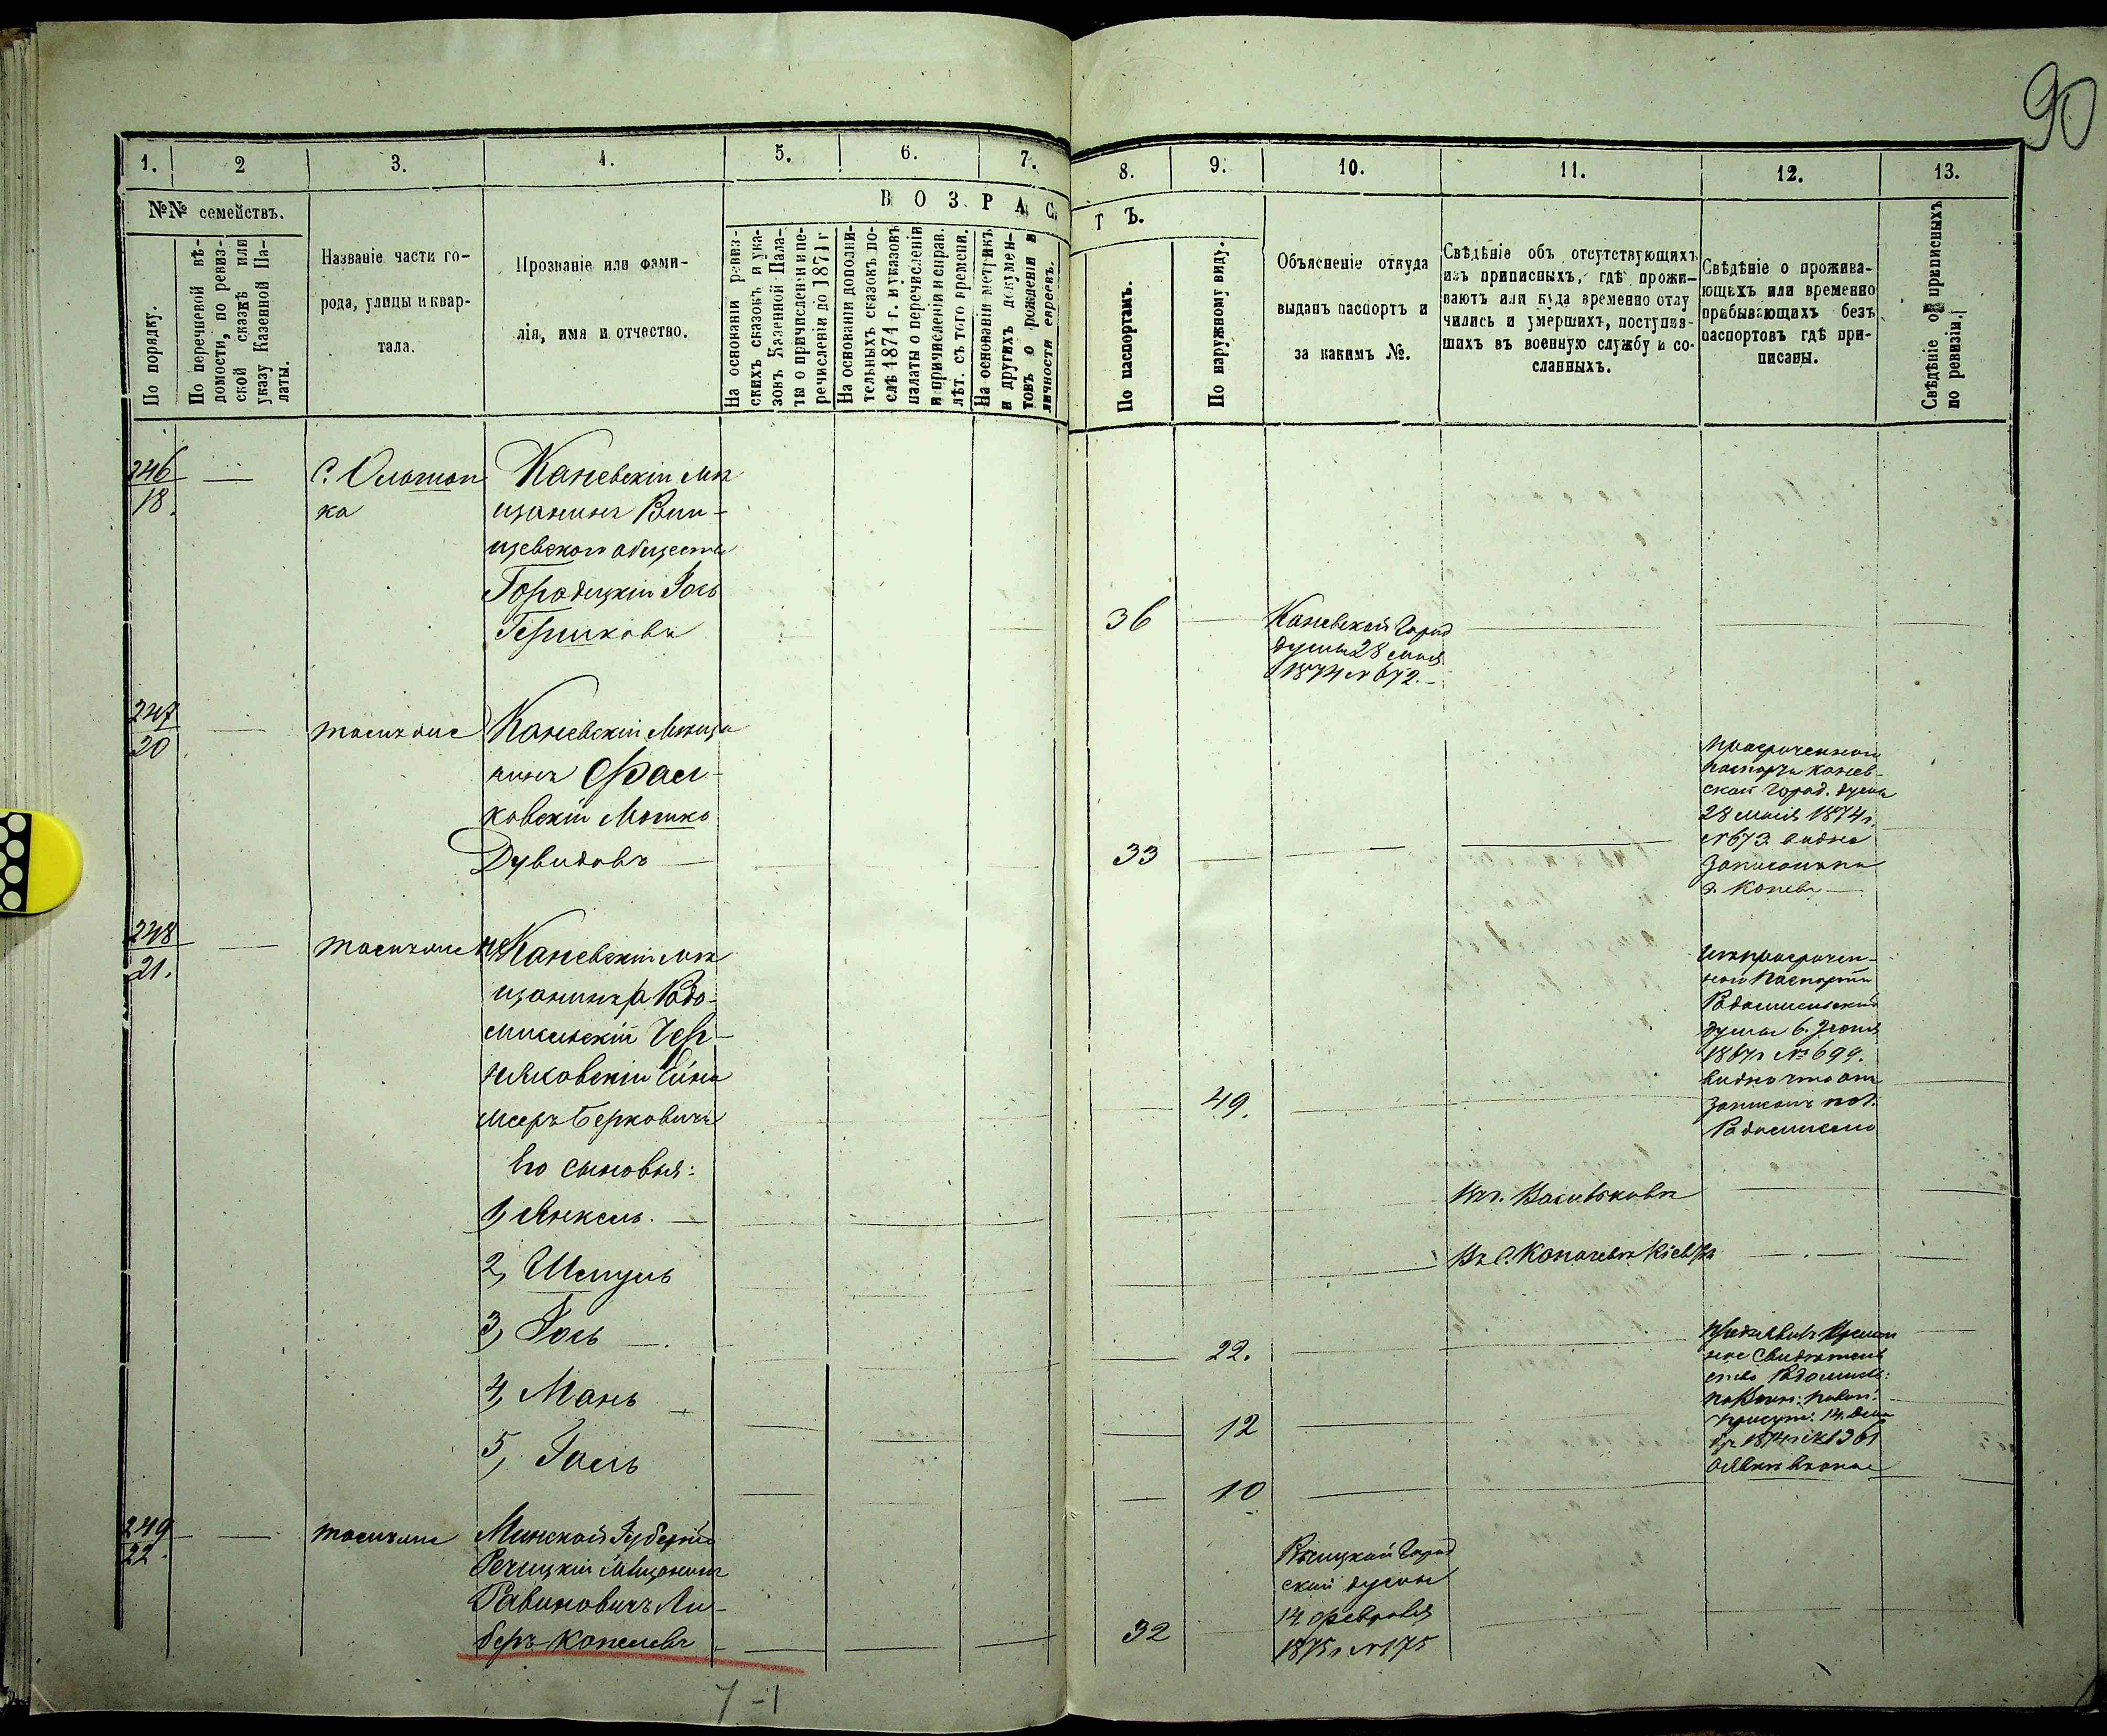 90
1. 2 3. 4. 5. 6. 7. 8. 9. 10. 11. 12. 13.
№№ семействъ.
В О З Р А С Т Ъ.
По порядку.
По перечневой вѣ-
домости, по ревиз-
ской сказкѣ или
указу Казенной Па-
латы.
Названіе части го-
рода, улицы и квар-
тала.
Прозваніе или фами-
лія, имя и отчество.
На основаніи ревиз-
скихъ сказокъ и ука-
зовъ Казенной Пала-
ты о причисленіи и пе-
речисленіи до 1871 г
На основаніи дополни-
тельныхъ сказокъ по-
слѣ 1871 г. и указовъ
палаты о перечисленіи
и причисленіи и справ.
лѣт. съ того времени.
На основаніи метрикъ
и другихъ докумен-
товъ о рожденіи и
личности евреевъ.
По паспортамъ.
По наружному виду.
Объясненіе откуда
выданъ паспортъ и
за какимъ №.
Свѣдѣніе объ отсутствующихъ
изъ приписныхъ, гдѣ прожи-
ваютъ или куда временно отлу
чились и умершихъ, поступив-
шихъ въ военную службу и со-
сланныхъ.
Свѣдѣніе о прожива-
ющихъ или временно
пребывающихъ безъ
паспортовъ гдѣ при-
писаны.
Свѣдѣніе о приписныхъ
по ревизіи.
246
18.
С. Ольшан
ка
Каневскій мѣ
щанинъ
щевского общества
Городецкій Іось
Гершковъ
36
Каневской Город
думы 28 мая
1874 № 672.
247
20
тоснъоне
Каневскій мѣща
нинъ
ковскій Мошко
Дувидовъ
33
просроченного
паспорта Канев-
ской город. думы
28 мая 1874 г.
№ 673 видно
записанъ
г. Каневъ
248
21.
Каневскій мѣ
щанинъ Радо-
мысльскій Чер-
няховскій
Меръ Берковичъ
49.
изъ просрочен-
ного паспорта
Радомысльской
думы 6. Іюня
1867 г № 699.
видно что онъ
записанъ по г.
Радомыслю
Его сыновья:
1, Янкель.
Въ г. Васильковѣ
2, Шмуль
3, Іось
22.
4, Мань
12
5, Іоель
10
249
22.
Минской Губерніи
Речицкій мѣщанинъ
Рабиновичъ Ли-
беръ Копелевъ
32
Рѣчицкой Город
ской думы
14 февраля
1875 г. № 175
7-1